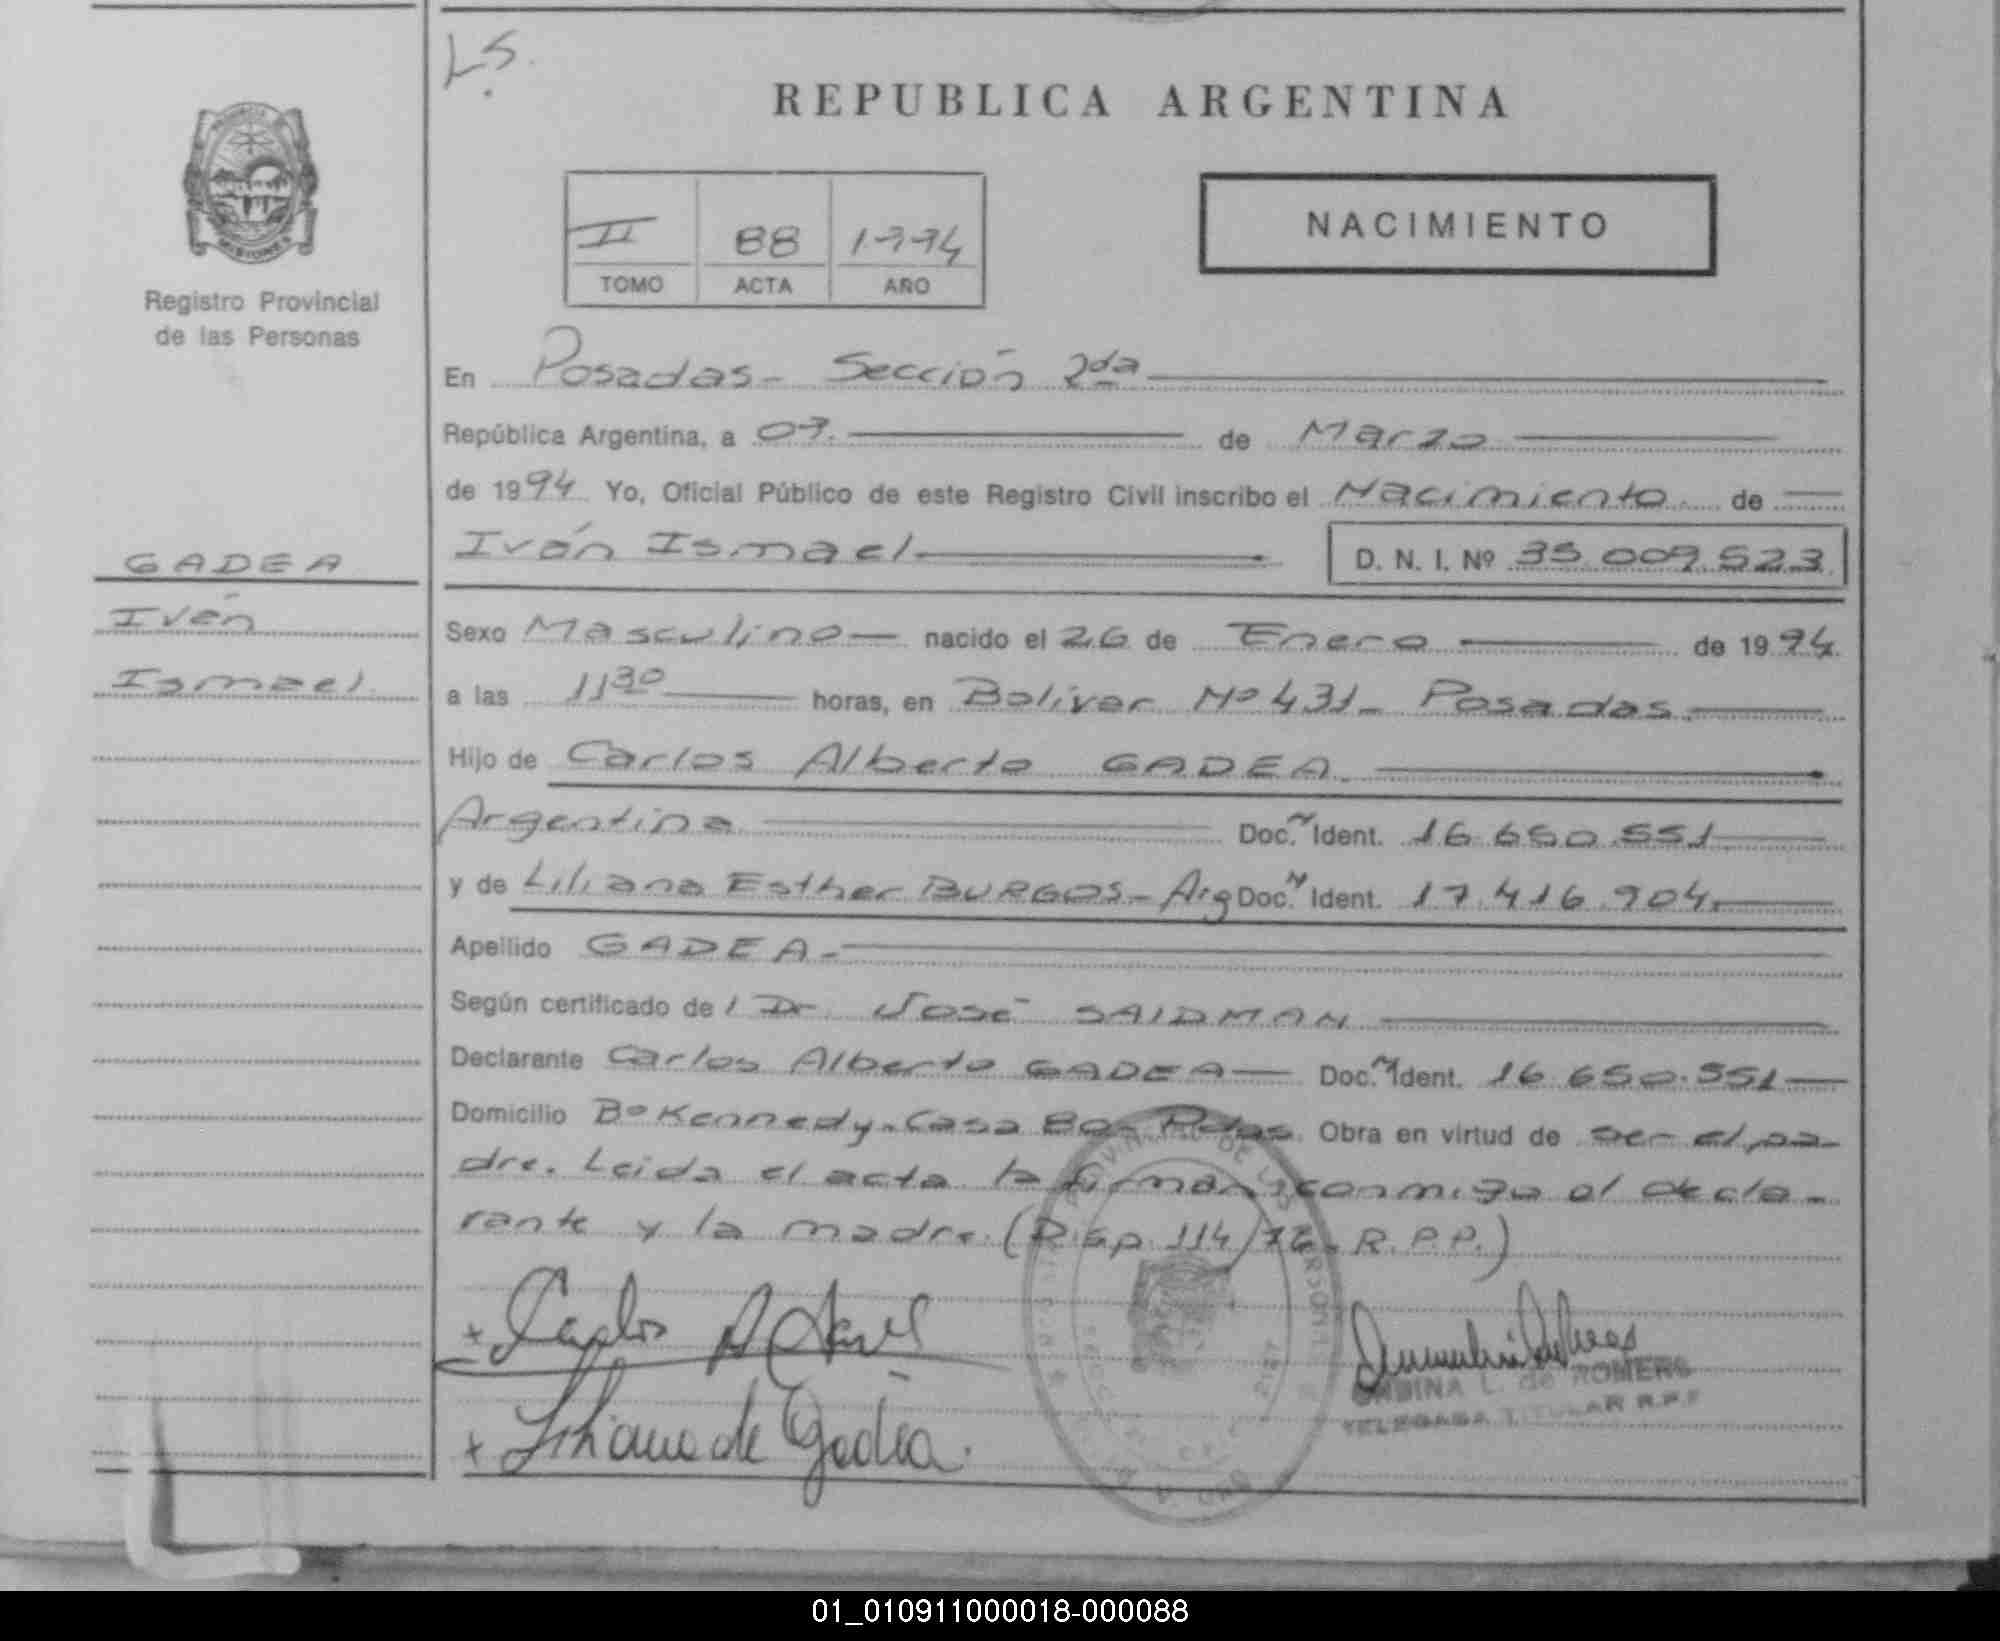 LS.
REPUBLICA ARGENTINA
NACIMIENTO
II 88 1994
TOMO ACTA AÑO
Registro Provincial
de las Personas
En Posadas - Sección 2da
República Argentina, a 07. de Marzo
de 1994 Yo, Oficial Público de este Registro Civil inscribo el Nacimiento de
Iván Ismael. D. N. I. Nº 35.009.523
GADEA
Iván
Ismael
Sexo Masculino nacido el 26 de Enero de 1994
a las 11 30 horas, en Bolívar Nº 431 - Posadas.
Hijo de Carlos Alberto GADEA.
Argentina Doc. N Ident. 16.650.551
y de Liliana Esther BURGOS - Arg Doc. N Ident. 17.416.904.
Apellido GADEA -
Según certificado de l Dr. José SAIDMAN
Declarante Carlos Alberto GADEA Doc. N Ident. 16.650.551
Domicilio Bº Kennedy - Casa 80 - Pdas. Obra en virtud de ser el pa-
dre. Leida el acta la firman conmigo el decla-
rante y la madre. (Disp. 114/76 - R.P.P.)
+ Carlos A
+ Liliana de Gadea.
L. de ROMERO
TITULAR R.P.P
01_010911000018-000088